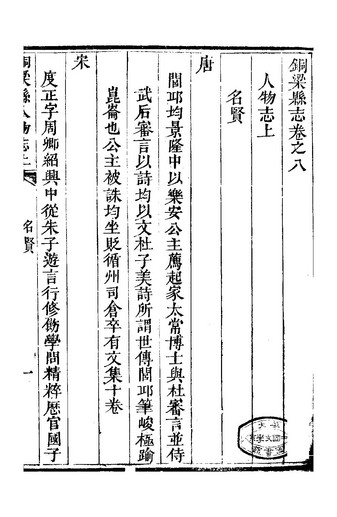 銅梁縣志卷之八
人物志上
名賢
唐
閭邱均景隆中以樂安公主薦起家太常博士與杜審言並侍
武后審言以詩均以文杜子美詩所謂世傳閭邱筆峻極踰
崑崙也公主被誅均坐貶循州司倉卒有文集十卷
宋
度正字周卿紹興中從朱子遊言行修勵學問精粹歷官國子
銅梁縣人物志上
名賢
一